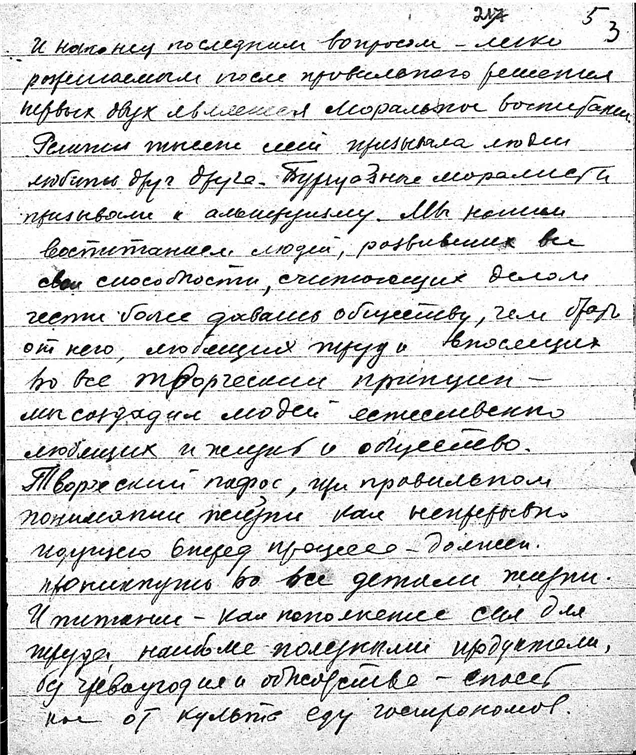 217 53
И наконец последним вопросом – легко
разрешаемым после правильного решения
первых двух является моральное воспитание.
Религия тысячи лет призывала людей
любить друг друга. Буржуазные моралисты
призывали к альтруизму. Мы нашим
воспитанием людей, развивших все
свои способности, считающих делом
чести более давать обществу, чем брать
от него, любящих труд и вносящих
во все творческий принцип –
мы создадим людей естественно
любящих и жизнь и общество.
Творческий пафос, при правильном
понимании жизни как непрерывно
идущего вперед процесса – должен
проникнуть во все детали жизни.
И питание – как пополнение сил для
труда, наиболее полезными продуктами,
без чревоугодия и обжорства – спасет
нас от культа еды гастрономов.